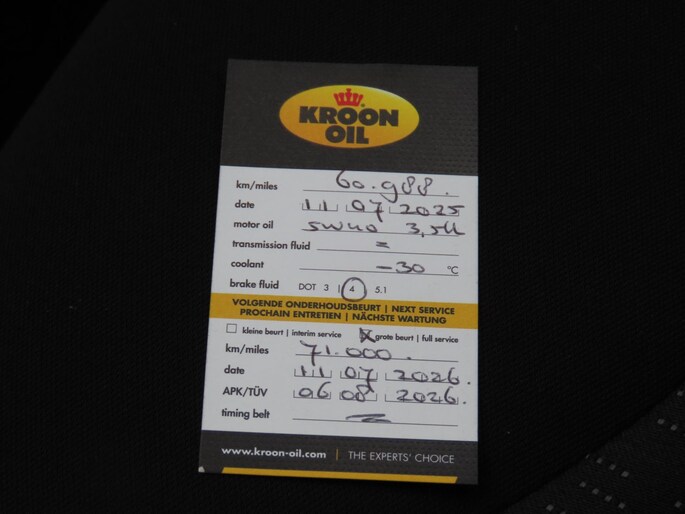 KROON
OIL
km/miles 60.988.
date 11 07 2025
motor oil 5w40 3,5L
transmission fluid =
coolant -30 °C
brake fluid DOT 3 | 4 | 5.1
VOLGENDE ONDERHOUDSBEURT | NEXT SERVICE
PROCHAIN ENTRETIEN | NÄCHSTE WARTUNG
kleine beurt | interim service X grote beurt | full service
km/miles 71.000.
date 11 07 2026.
APK/TÜV 06 08 2026.
timing belt
www.kroon-oil.com | THE EXPERTS' CHOICE